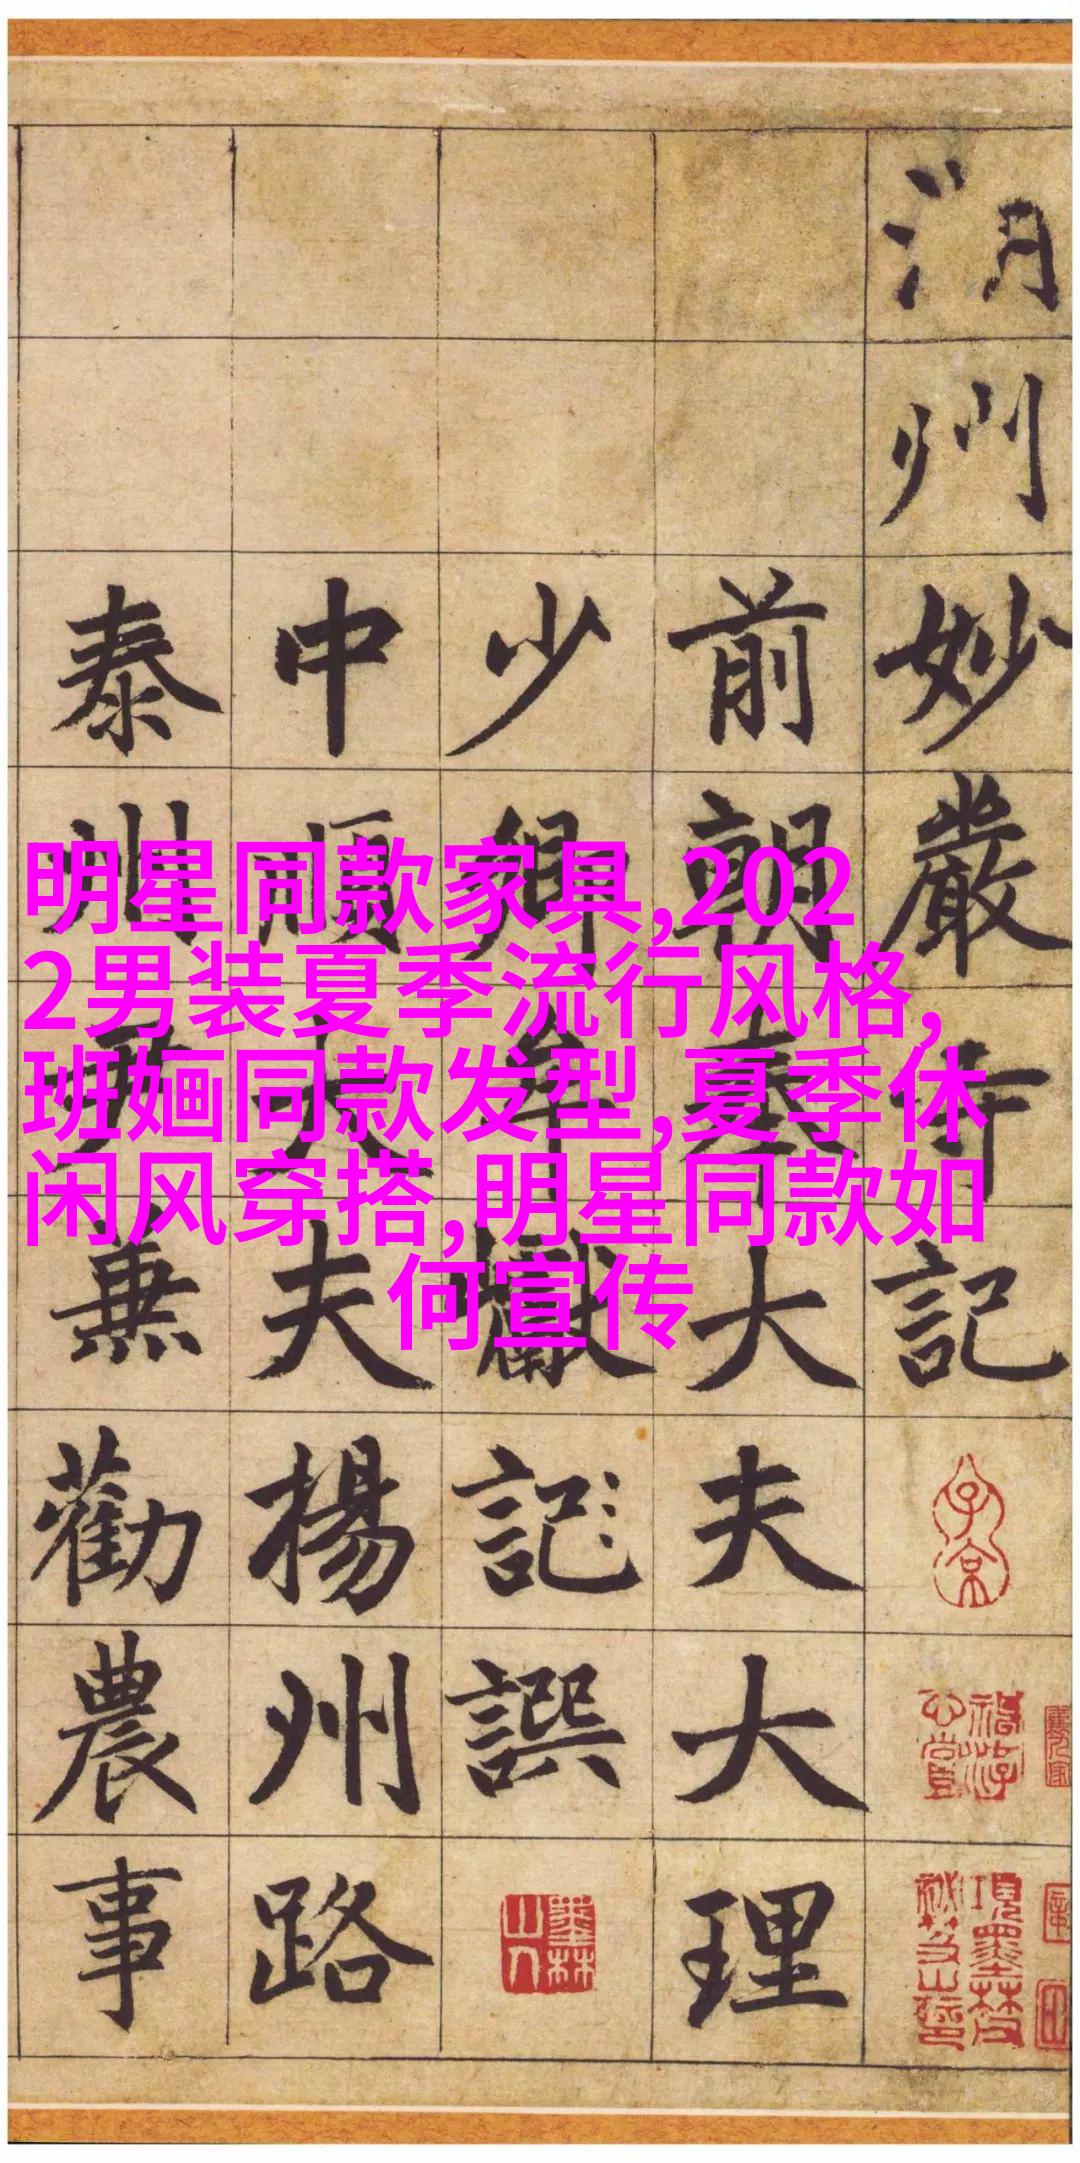 湖
州
妙
嚴
寺
記
前朝奉大夫大理
少卿牟巘記譔
中順大夫楊州路
泰州尹兼勸農事
明星同款家具,202
2男装夏季流行风格,
班婳同款发型,夏季休
闲风穿搭,明星同款如
何宣传